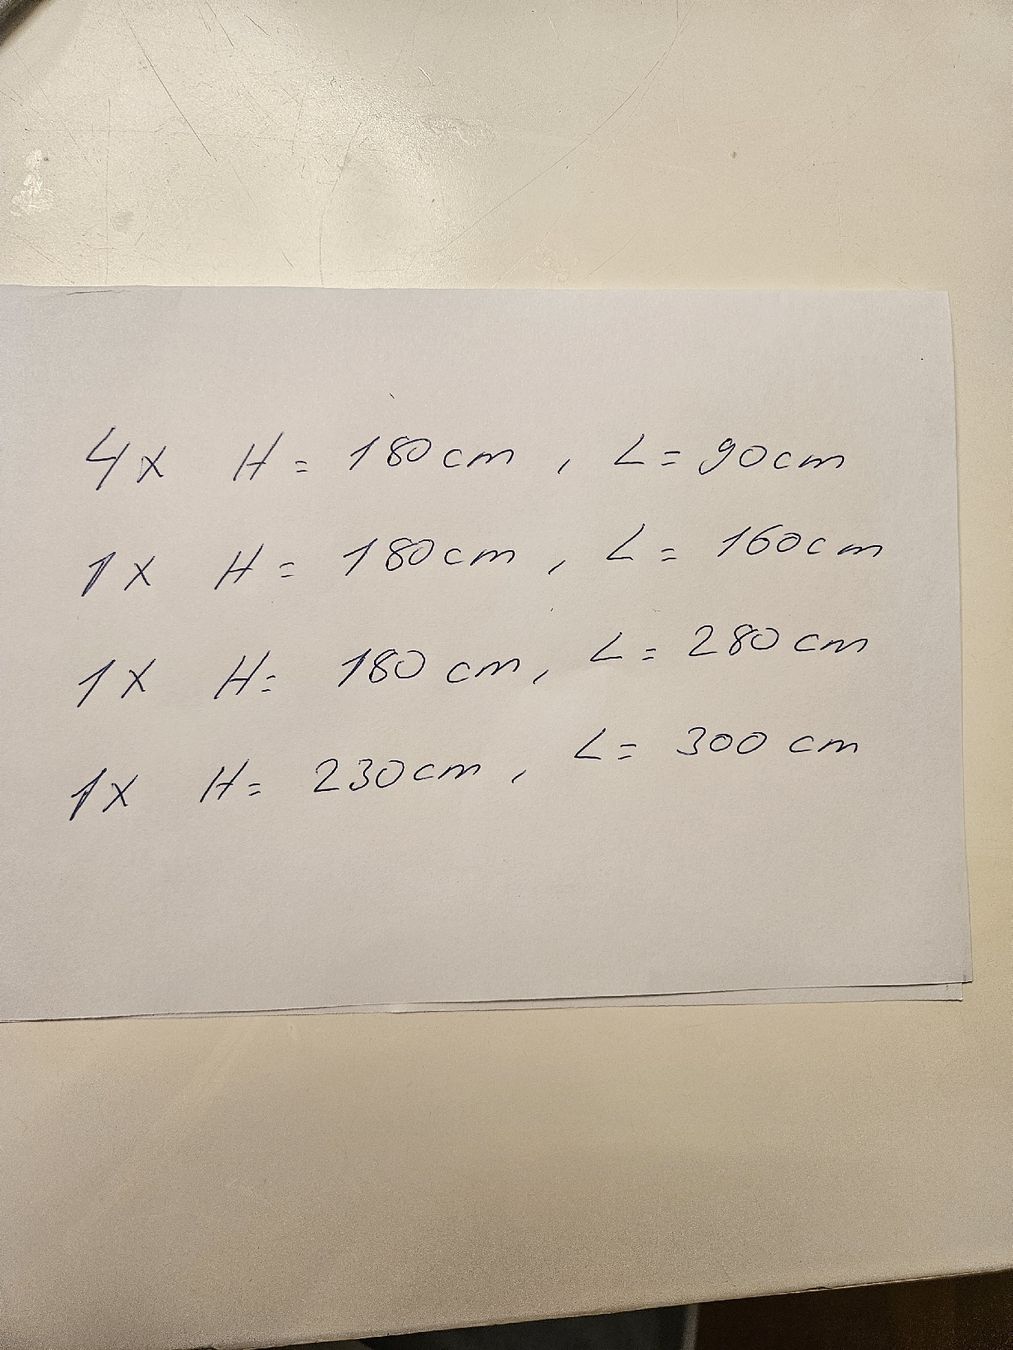 4x H = 180cm , L = 90cm
1x H = 180cm , L = 160cm
1x H = 180 cm , L = 280 cm
1x H = 230cm , L = 300 cm